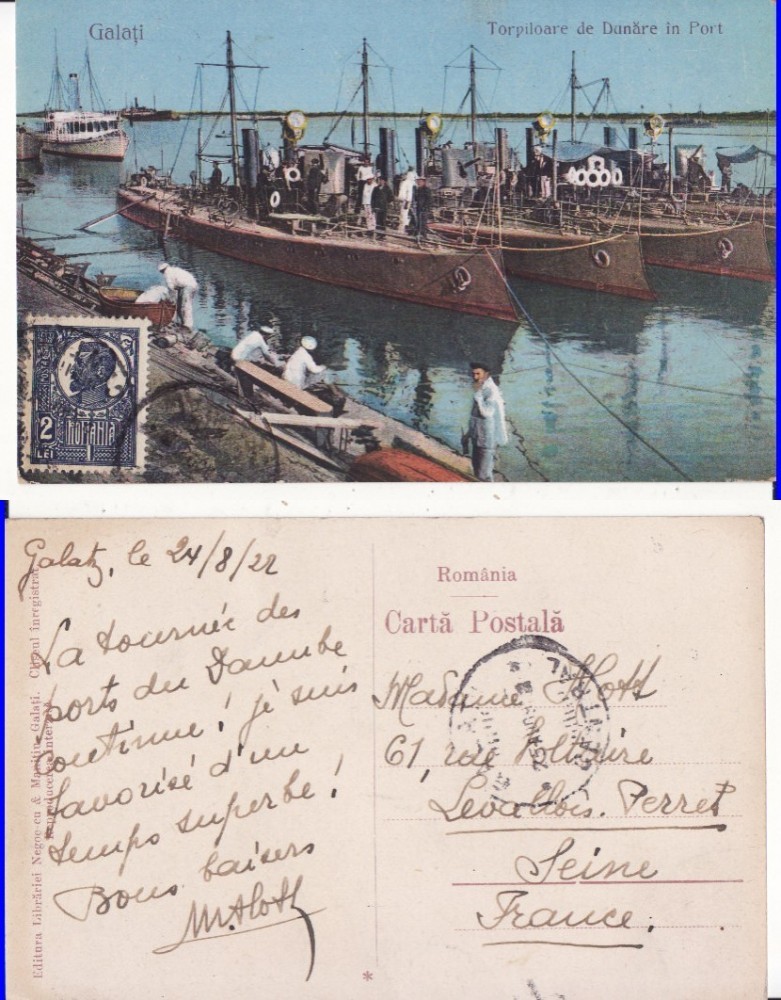 Galați
Torpiloare de Dunăre în Port
2
LEI
ROMANIA
Galatz, le 24/8/22
La tournée des
ports du Danube
continue! je suis
favorisé d'un
temps superbe!
Bons baisers
România
Cartă Postală
Madame
61, rue Voltaire
Levallois-Perret
Seine
France.
Editura Librăriei Negoescu & Manoliu, Galați. Clișeul înregistrat
Reproducerea interzisă
*